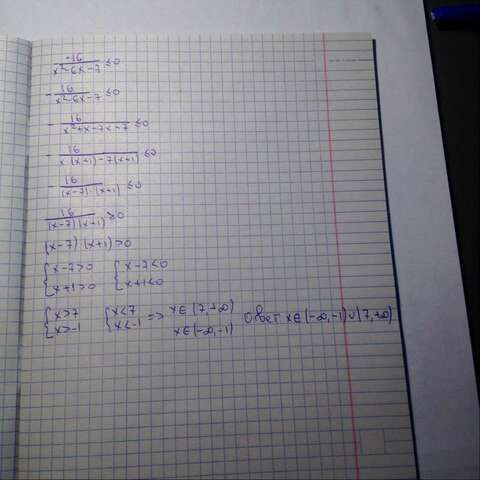 -16/(x²-6x-7) ≤0
-16/(x²-6x-7) ≤0
-16/(x²+x-7x-7) ≤0
-16/(x·(x+1)-7(x+1)) ≤0
-16/((x-7)·(x+1)) ≤0
16/((x-7)·(x+1)) ≥0
(x-7)·(x+1)>0
{x-7>0 {x-7<0
{x+1>0 {x+1<0
{x>7 {x<7 => x∈(7,+∞) Ответ x∈(-∞,-1)∪(7,+∞)
{x>-1 {x<-1 x∈(-∞,-1)